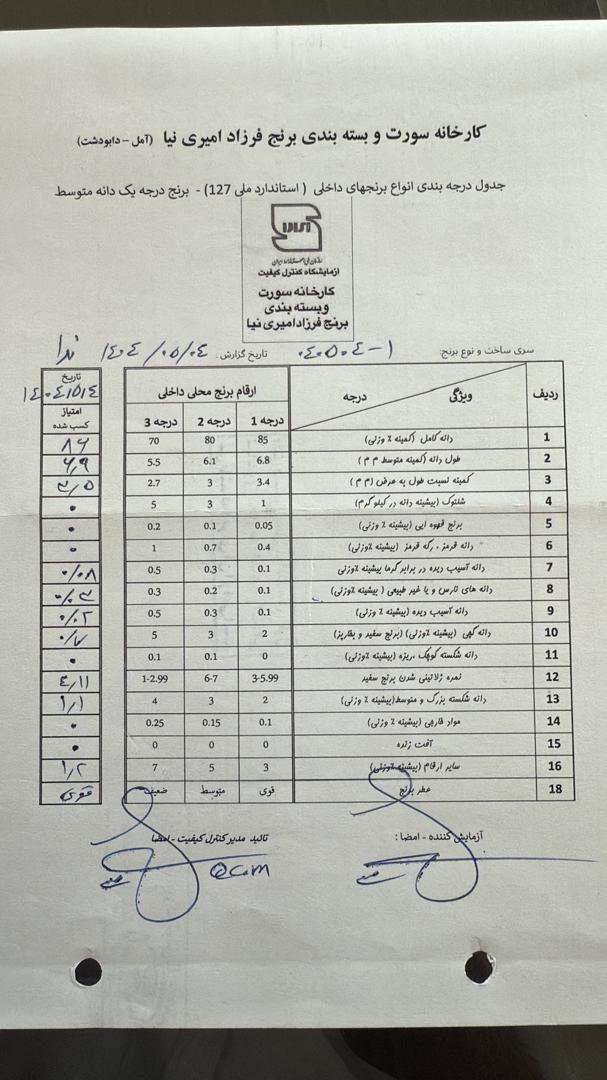 کارخانه سورت و بسته بندی برنج فرزاد امیری نیا (آمل - دابودشت)
جدول درجه بندی انواع برنجهای داخلی ( استاندارد ملی 127) - برنج درجه یک دانه متوسط
آزمایشگاه کنترل کیفیت
کارخانه سورت
وبسته بندی
برنج فرزادامیری نیا
سری ساخت و نوع برنج: ۰۴۰۵۰۴-۱ تاریخ گزارش: ۱۴۰۴/۰۵/۰۴ ندا
ردیف ویژگی درجه ارقام برنج محلی داخلی تاریخ ۱۴۰۴/۵/۴
درجه 1 درجه 2 درجه 3 امتیاز کسب شده
1 دانه کامل (کمینه ٪ وزنی) 85 80 70 ۸۶
2 طول دانه (کمینه متوسط م م) 6.8 6.1 5.5 ۶٫۹
3 کمینه نسبت طول به عرض (م م) 3.4 3 2.7 ۳٫۵
4 شلتوک (بیشینه دانه در کیلوگرم) 1 3 5 ۰
5 برنج قهوه ایی (بیشینه ٪ وزنی) 0.05 0.1 0.2 ۰
6 دانه قرمز ، رگه قرمز (بیشینه ٪وزنی) 0.4 0.7 1 ۰
7 دانه آسیب دیده در برابر گرما بیشینه ٪وزنی 0.1 0.3 0.5 ۰/۰۸
8 دانه های نارس و یا غیر طبیعی (بیشینه ٪وزنی) 0.1 0.2 0.3 ۰/۰۳
9 دانه آسیب دیده (بیشینه ٪ وزنی) 0.1 0.3 0.5 ۰/۰۲
10 دانه گچی (بیشینه ٪وزنی) (برنج سفید و بخارپز) 2 3 5 ۰/۷
11 دانه شکسته کوچک ،ریزه (بیشینه ٪وزنی) 0 0.1 0.1 ۰
12 نمره ژلاتینی شدن برنج سفید 3-5.99 6-7 1-2.99 ۴٫۱۱
13 دانه شکسته بزرگ و متوسط(بیشینه ٪ وزنی) 2 3 4 ۱٫۱
14 مواد خارجی (بیشینه ٪ وزنی) 0.1 0.15 0.25 ۰
15 آفت زنده 0 0 0 ۰
16 سایر ارقام (بیشینه ٪وزنی) 3 5 7 ۱٫۲
18 عطر برنج قوی متوسط ضعیف قوی
آزمایش کننده - امضا : تائید مدیر کنترل کیفیت - امضا